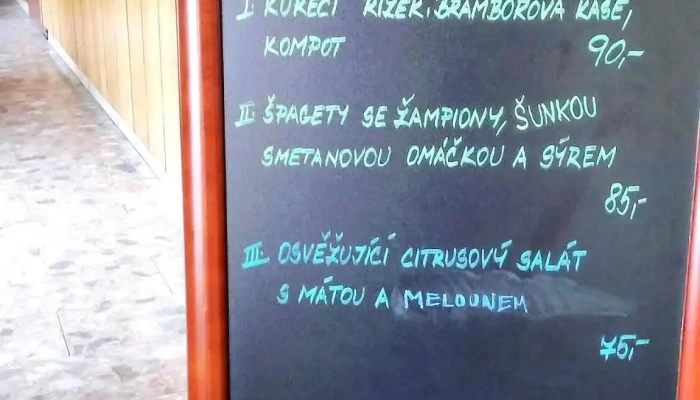 I. KUŘECÍ ŘÍZEK, BRAMBOROVÁ KAŠE,
KOMPOT 90,-
II. ŠPAGETY SE ŽAMPIONY, ŠUNKOU
SMETANOVOU OMÁČKOU A SÝREM
85,-
III. OSVĚŽUJÍCÍ CITRUSOVÝ SALÁT
S MÁTOU A MELOUNEM
75,-